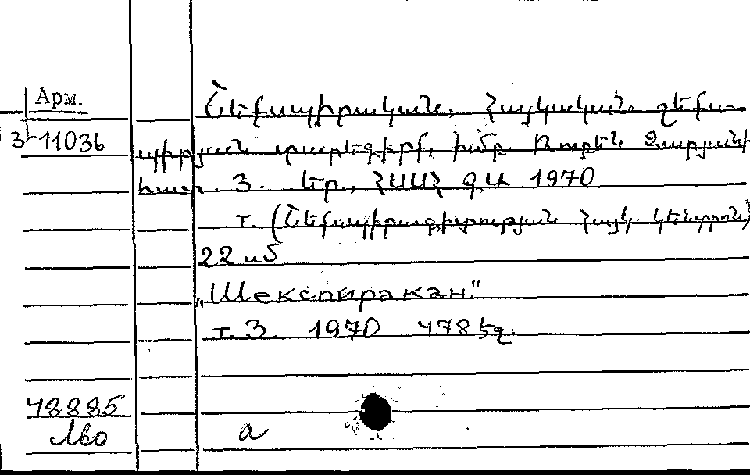 Арм.
3-11036
Շեքսպիրական. Հայկական շեքս-
պիրյան տարեգիրք, խմբ. Ռուբեն Զարյանի
հատ. 3. Եր., ՀՍՍՀ ԳԱ 1970
т. (Շեքսպիրագիտության հայկ. կենտրոն)
22 սմ
„Шекспиракан."
т. 3. 1970 478 էջ.
48885
Лво а